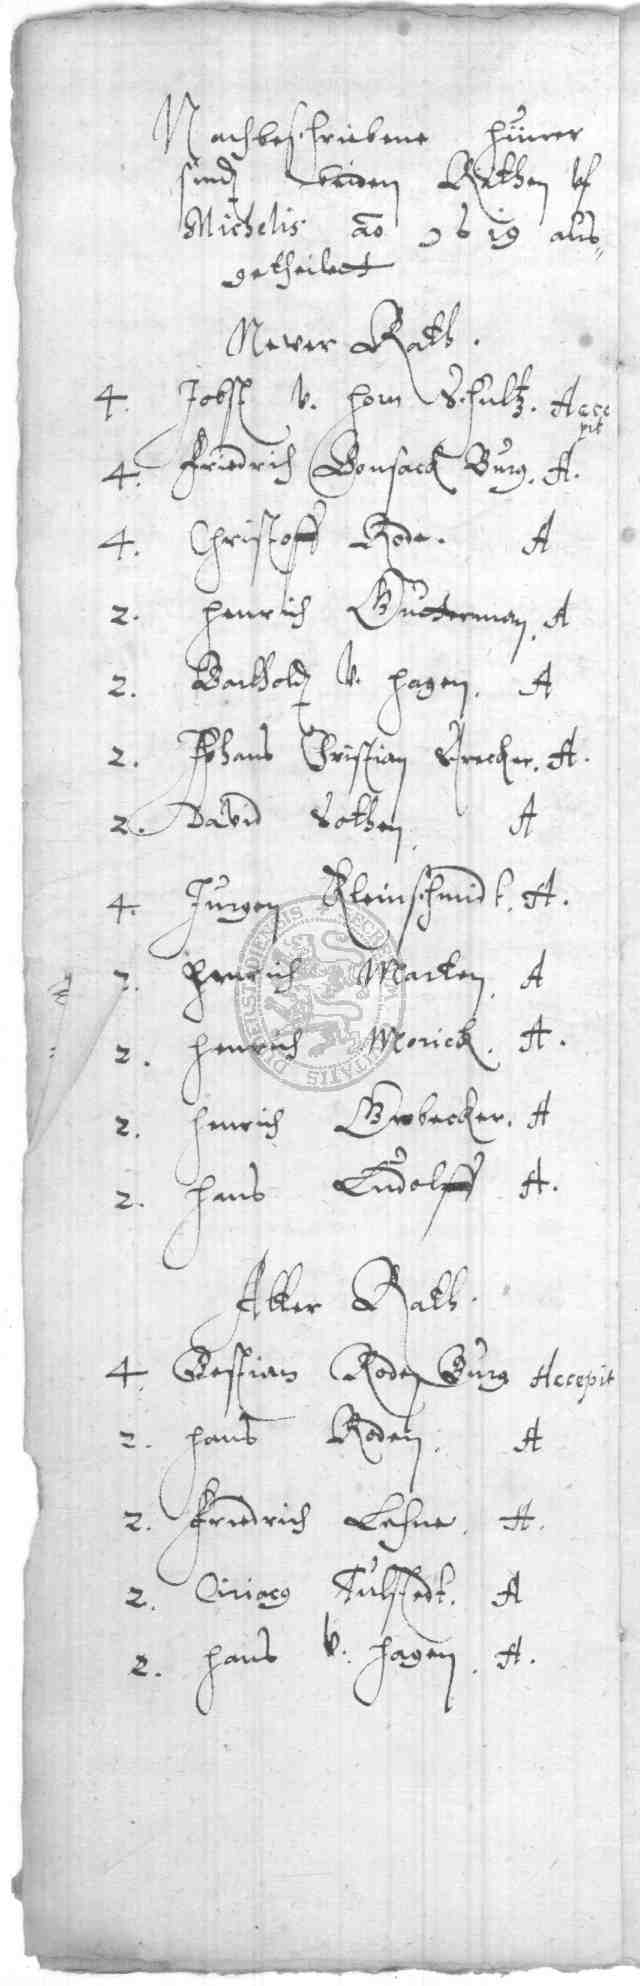 Nachbeschriebene hüner
sind beiden Räthen vf
Michelis ao 1619 aus
getheilett
Newer Rath.
4. Jobst v. horn Schultz. Acce
pit
4. Friedrich Bonsack Burg. A.
4. Christoff Rode. A
2. henrich Gutterman, A
2. Barthold v. hagen. A
2. Johans Christian Strecker. A.
2. David Sothen A
4. Jurgen Kleinschmidt. A.
2. henrich Marten A
2. henrich Morick. A.
2. henrich Grobecker. A
2. hans Ludolff A.
Alter Rath.
4 Bestian Roden Burg Accepit
2. hans Roden. A
2. Friedrich Lesne. A.
2. Ciriacg Tulstedt. A
2. hans v. hagen. A.
DUDERSTADIENSIS SECRETUM CIVITATIS